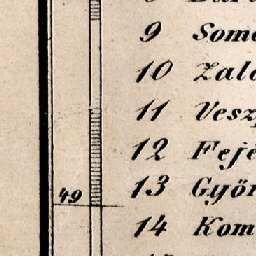 9 Some
10 Zala
11 Vesz
12 Feje
13 Győr
49
14 Kom